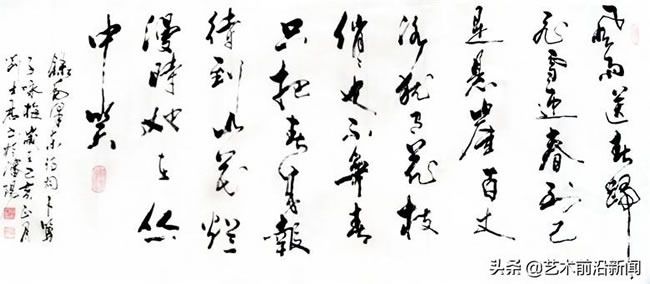 风雨送春歸
飞雪迎春到已
是悬崖百丈
冰犹有花枝
俏俏也不争春
只把春来報
待到山花烂
漫時她在丛
中笑
錄毛泽东诗词卜算
子咏梅岁在己亥正月
头条 @艺术前沿新闻